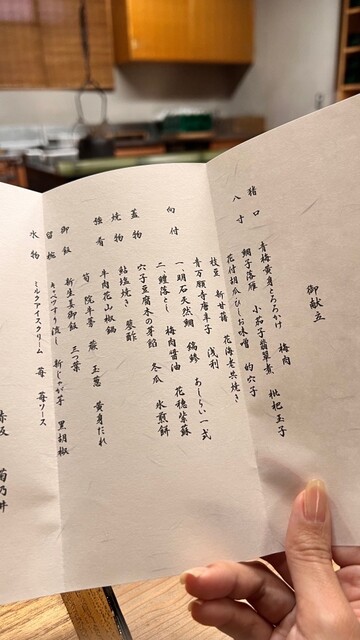 御献立
猪口 青梅黄身とろろかけ 梅肉
八寸 鯛子落雁 小茄子翡翠煮 枇杷玉子
花付胡瓜ひしお味噌 的穴子
枝豆 新甘藷 花海老共焼き
青万願寺唐辛子 浅利
向付 一、明石天然鯛 縞鯵 あしらい一式
二、鱧落とし 梅肉醤油 花穂紫蘇
蓋物 穴子豆腐木の芽餡 冬瓜 氷煎餅
焼物 鮎塩焼き 蓼酢
強肴 牛肉花山椒鍋
筍 蕨 玉葱 黄身だれ
御飯 新生姜御飯 三つ葉
留椀 キャベツすり流し 新じゃが芋 黒胡椒
水物 ミルクアイスクリーム 苺 苺ソース
赤坂 菊乃井